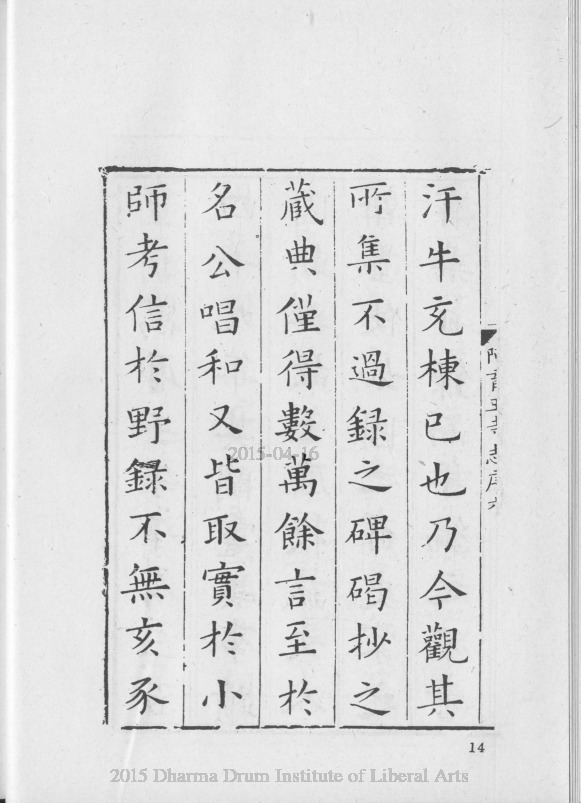 汗牛充棟已也乃今觀其
所集不過録之碑碣抄之
蔵典僅得數萬餘言至於
名公唱和又皆取實於小
師考信於野録不無亥豕
阿育王寺志序六
14
2015-04-16
2015 Dharma Drum Institute of Liberal Arts